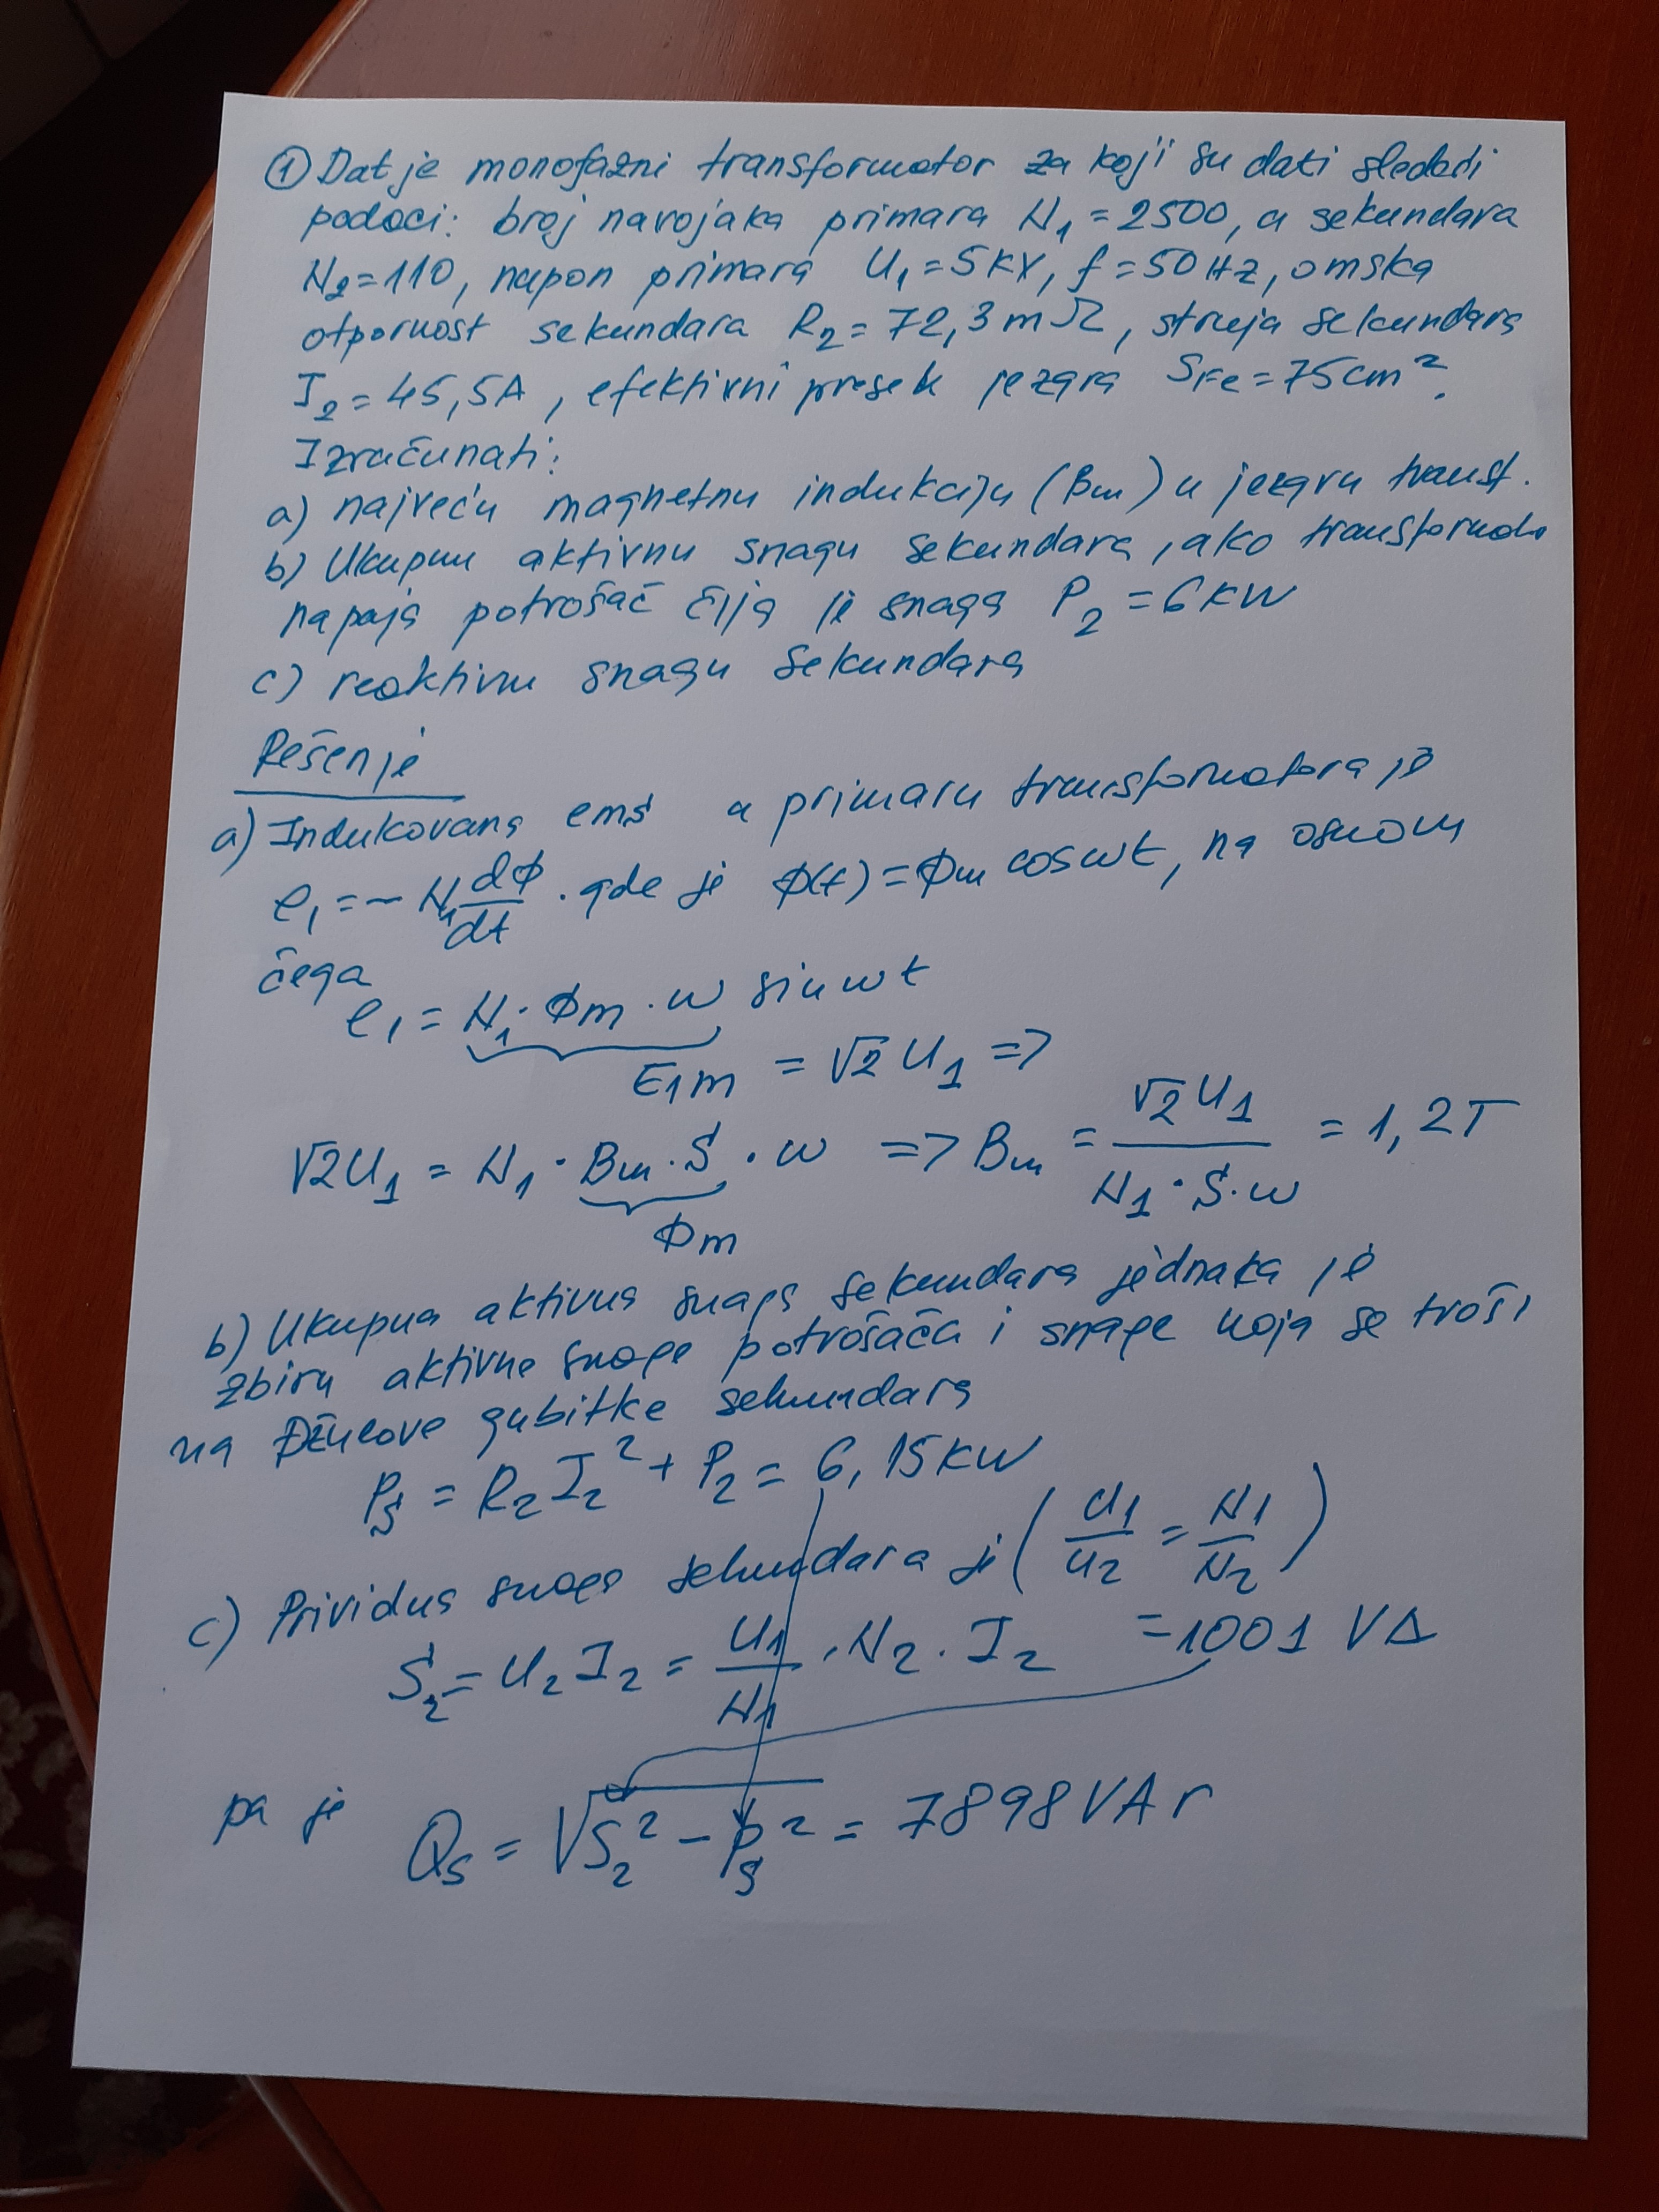 ① Dat je monofazni transformator za koji su dati sledeći
podaci: broj navojaka primara N₁=2500, a sekundara
N₂=110, napon primara U₁=5kV, f=50Hz, omska
otpornost sekundara R₂=72,3mΩ, struja sekundara
I₂=45,5A, efektivni presek jezgra S_Fe=75cm².
Izračunati:
a) najveću magnetnu indukciju (Bm) u jezgru transf.
b) Ukupnu aktivnu snagu sekundara, ako transformator
napaja potrošač čija je snaga P₂=6kW
c) reaktivnu snagu sekundara
Rešenje
a) Indukovana ems u primaru transformatora je
e₁=-N₁ dΦ/dt . gde je Φ(t)=Φm cosωt, na osnovu
čega
e₁=N₁·Φm·ω sinωt
E₁m = √2 U₁ =>
√2U₁ = N₁·Bm·S·ω => Bm = √2 U₁ / N₁·S·ω = 1,2T
Φm
b) Ukupna aktivna snaga sekundara jednaka je
zbiru aktivne snage potrošača i snage koja se troši
na Džulove gubitke sekundara
P_S = R₂I₂² + P₂ = 6,15kW
c) Prividna snaga sekundara je (U₁/U₂ = N₁/N₂)
S₂=U₂I₂= U₁/N₁ ·N₂·I₂ =1001 VA
pa je Q_S = √S₂² - P_S² = 7898VAr